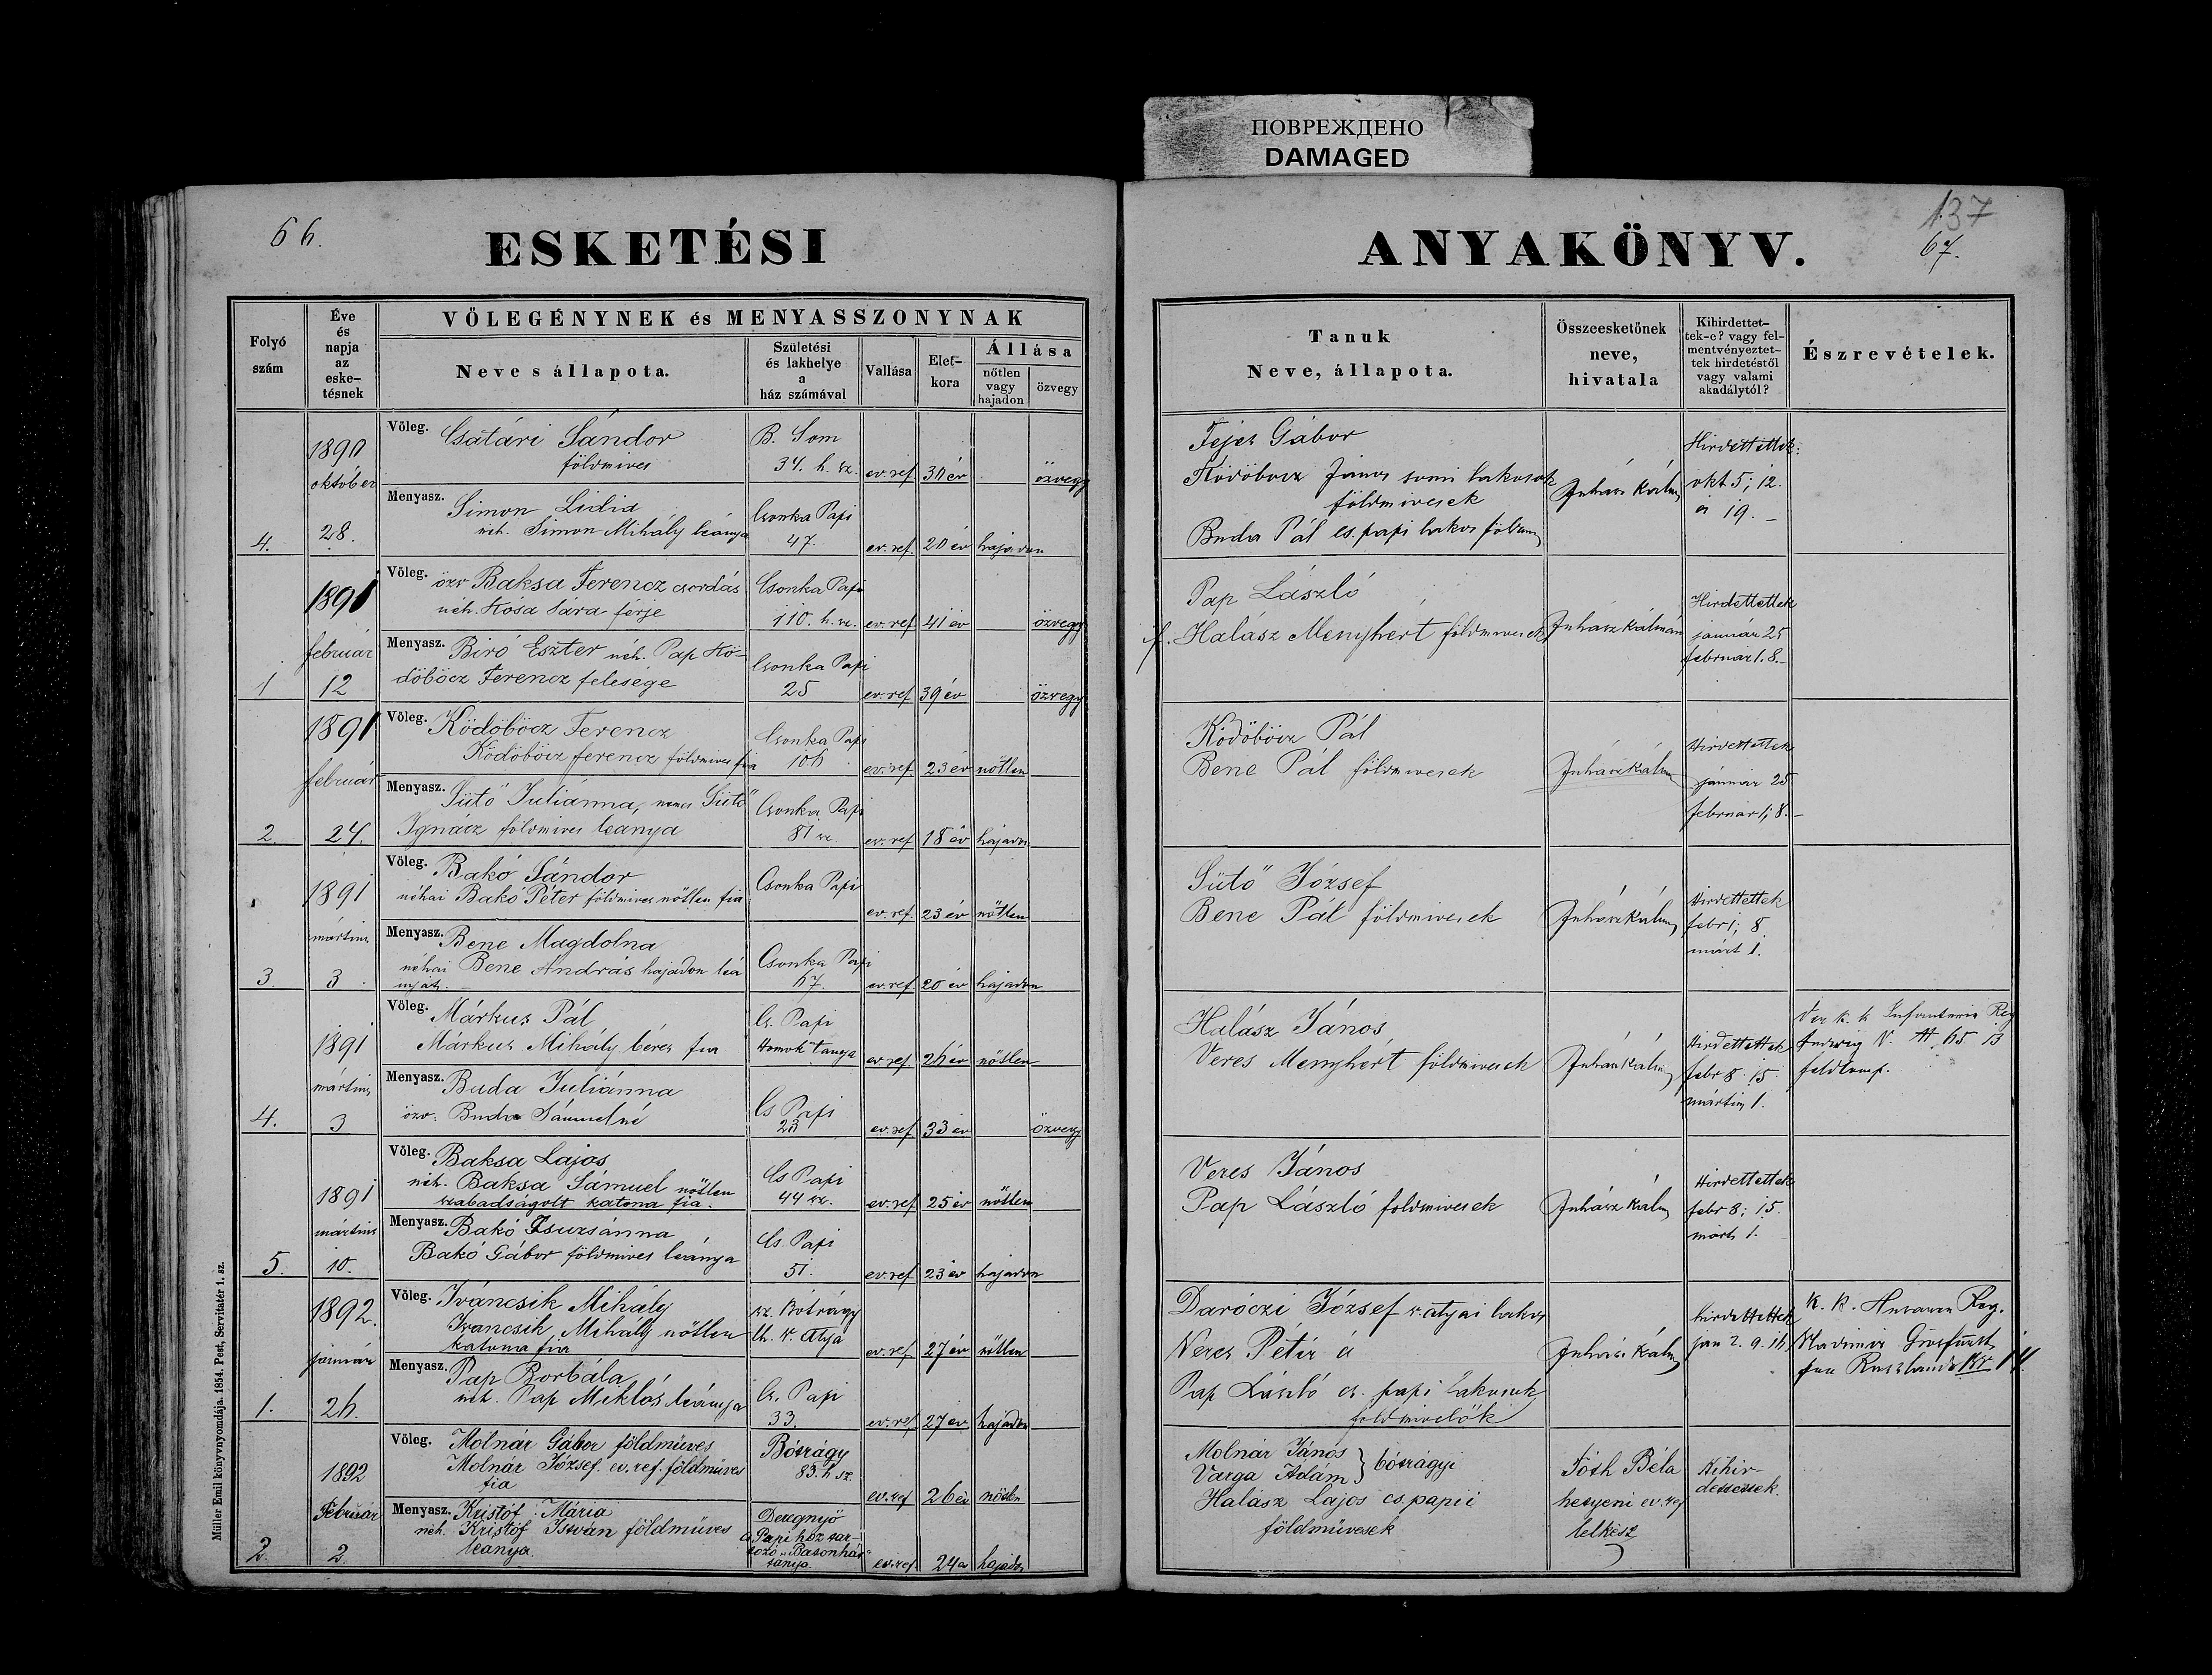 ПОВРЕЖДЕНО
DAMAGED
66.
ESKETÉSI
Folyó szám
Éve és napja az eske-tésnek
VÖLEGÉNYNEK és MENYASSZONYNAK
Neve s állapota.
Születési és lakhelye a ház számával
Vallása
Elet-kora
Állása
nőtlen vagy hajadon
özvegy
4.
1890 október 28.
Völeg. Csatári Sándor
földmives
B. Som
34. h. sz.
ev. ref. 30 év özvegy
Menyasz. Simon Lidia
néh. Simon Mihály leánya
Csonka Papi
47.
ev. ref. 20 év hajadon
1
1891 február 12
Völeg. özv Baksa Ferencz csordás
néh. Kósa Sára férje
Csonka Papi
110. h. sz. ev. ref 41 év özvegy
Menyasz. Biró Eszter néh. Pap Kö-
döböcz Ferencz felesége
Csonka Papi
25 ev. ref 39 év özvegy
2.
1891 február 24.
Völeg. Ködöböcz Ferencz
Ködöböcz ferencz földmives fia
Csonka Papi
106 ev. ref 23 év nőtlen
Menyasz. Sütő Juliánna, nemes Sütő
Ignácz földmives leanya
Csonka Papi
81 sz. ev. ref 18 év hajadon
3.
1891 mártius 3
Völeg. Bakó Sándor
néhai Bakó Péter földmives nőtlen fia
Csonka Papi
ev. ref. 23 év nőtlen
Menyasz. Bene Magdolna
néhai Bene András hajadon leá
nyát. –
Csonka Papi
67. ev. ref. 20 év hajadon
4.
1891 mártius 3
Völeg. Márkus Pál
Márkus Mihály béres fia
Cs. Papi
"Homok" tanya ev. ref 26 év nőtlen
Menyasz. Buda Juliánna
özv. Buda Sámuelné
Cs Papi
23 ev. ref 33 év özvegy
5.
1891 mártius 10.
Völeg. Baksa Lajos
néh. Baksa Sámuel nőtlen
szabadságolt katona fia.
Cs Papi
44 sz. ev. ref 25 év nőtlen
Menyasz. Bakó Zsuzsánna
Bakó Gábor földmives leánya
Cs. Papi
51. ev. ref 23 év hajadon
1.
1892. január 26.
Völeg. Iváncsik Mihály
Ivancsik Mihály nőtlen
katona fia
sz. Bótrágy
lh. V. Atya
ev. ref. 27 év nőtlen
Menyasz. Pap Borbála
néh. Pap Miklós leánya
Cs. Papi
33. ev. ref 27 év hajadon
2.
1892 Február 2
Völeg. Molnár Gábor földmüves
Molnár József. ev. ref. földmüves
fia
Bótrágy
83. h sz.
ev. ref 26 év nőtlen
Menyasz. Kristóf Mária
néh. Kristóf István földmüves
leanya.
Deregnyő
Cs. Papi hoz tar-
tozó „Batonhár"
tanya. ev. ref. 24 hajadon
Müller Emil könyvnyomdája. 1854. Pest, Servitatér 1. sz.
137
67.
ANYAKÖNYV.
Tanuk
Neve, állapota.
Összeesketőnek neve, hivatala
Kihirdettet-tek-e? vagy fel-mentvényeztet-tek hirdetéstől vagy valami akadálytól?
Észrevételek.
Fejes Gábor
Ködöböcz János somi lakosok
földmivesek
Buda Pál cs. papi lakos földm
Juhász Kálm
Hirdettettek:
okt 5; 12.
és 19. –
Pap László
if. Halász Menyhért földmivesek
Juhász Kálmán
Hirdettettek
január 25
február 1. 8. –
Ködöböcz Pál
Bene Pál földmivesek
Juhász Kálm
Hirdettettek
január 25
február 1; 8. –
Sütő József
Bene Pál földmivesek
Juhász Kálm
Hirdettettek
febr 1; 8.
márt 1.
Halász János
Veres Menyhért földmivesek
Juhász Kálm
Hirdettettek
febr 8. 15.
mártius 1.
k. k. Infanterie Reg
Ludwig N. 65 13
feldcomp.
Veres János
Pap László foldmivesek
Juhász Kálm
Hirdettettek
febr 8; 15.
márt 1.
Daróczi József v. atyai lakos
Veres Péter és
Pap László cs. papi lakosok
foldmivelők
Juhász Kálm
hirdettettek
jan 2. 9. 16
K. K. Husaren Reg.
Wladimir Grosfürst
von Russland Nr 14.
Molnár János } bótrágyi
Varga Ádám
Halász Lajos cs. papii
földmüvesek
Tóth Béla
hetyeni ev. ref
lelkész
Kihir-
dettettek.